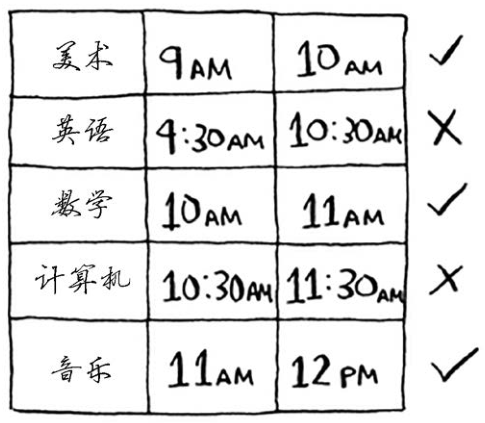 美术 9AM 10AM ✓
英语 9:30AM 10:30AM ✗
数学 10AM 11AM ✓
计算机 10:30AM 11:30AM ✗
音乐 11AM 12PM ✓